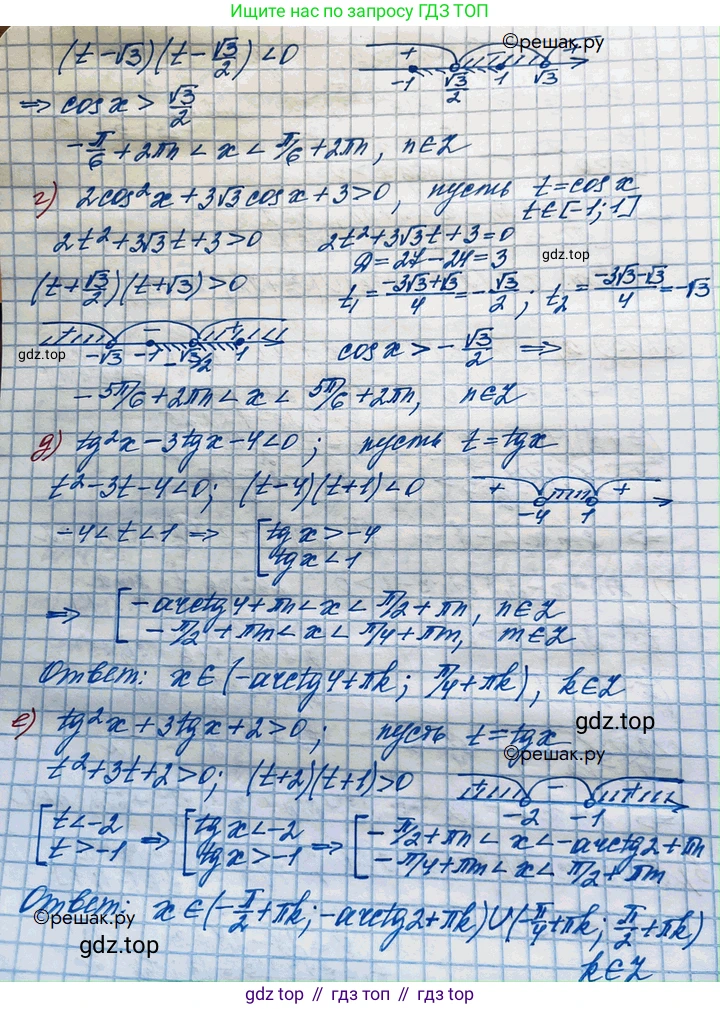 Ищите нас по запросу ГДЗ ТОП
(t-√3)(t-√3/2)<0 + -1 √3/2 1 √3 +
©решак.ру
⇒ cosx > √3/2
-π/6+2πn<x<π/6+2πn, n∈Z
г) 2cos²x+3√3cosx+3>0, пусть t=cosx
t∈[-1;1]
2t²+3√3t+3>0 2t²+3√3t+3=0
D=27-24=3
gdz.top
(t+√3/2)(t+√3)>0 t₁=(-3√3+√3)/4=-√3/2; t₂=(-3√3-√3)/4=-√3
+ - + -√3 -1 -√3/2 1
gdz.top
cosx>-√3/2 ⇒
-5π/6+2πn<x<5π/6+2πn, n∈Z
д) tg²x-3tgx-4<0; пусть t=tgx
t²-3t-4<0; (t-4)(t+1)<0 + -4 1 +
-4<t<1 ⇒ [tgx>-4
tgx<1
⇒ [-arctg4+πn<x<π/2+πn, n∈Z
-π/2+πm<x<π/4+πm, m∈Z
Ответ: x∈(-arctg4+πk; π/4+πk), k∈Z
е) tg²x+3tgx+2>0; пусть t=tgx
gdz.top
©решак.ру
t²+3t+2>0; (t+2)(t+1)>0 + - + -2 -1
[t<-2 ⇒ [tgx<-2 ⇒ [-π/2+πn<x<-arctg2+πn
t>-1 tgx>-1 -π/4+πm<x<π/2+πm
Ответ: x∈(-π/2+πk;-arctg2+πk)∪(-π/4+πk; π/2+πk)
©решак.ру
gdz.top
k∈Z
gdz.top // гдз топ // гдз.топ